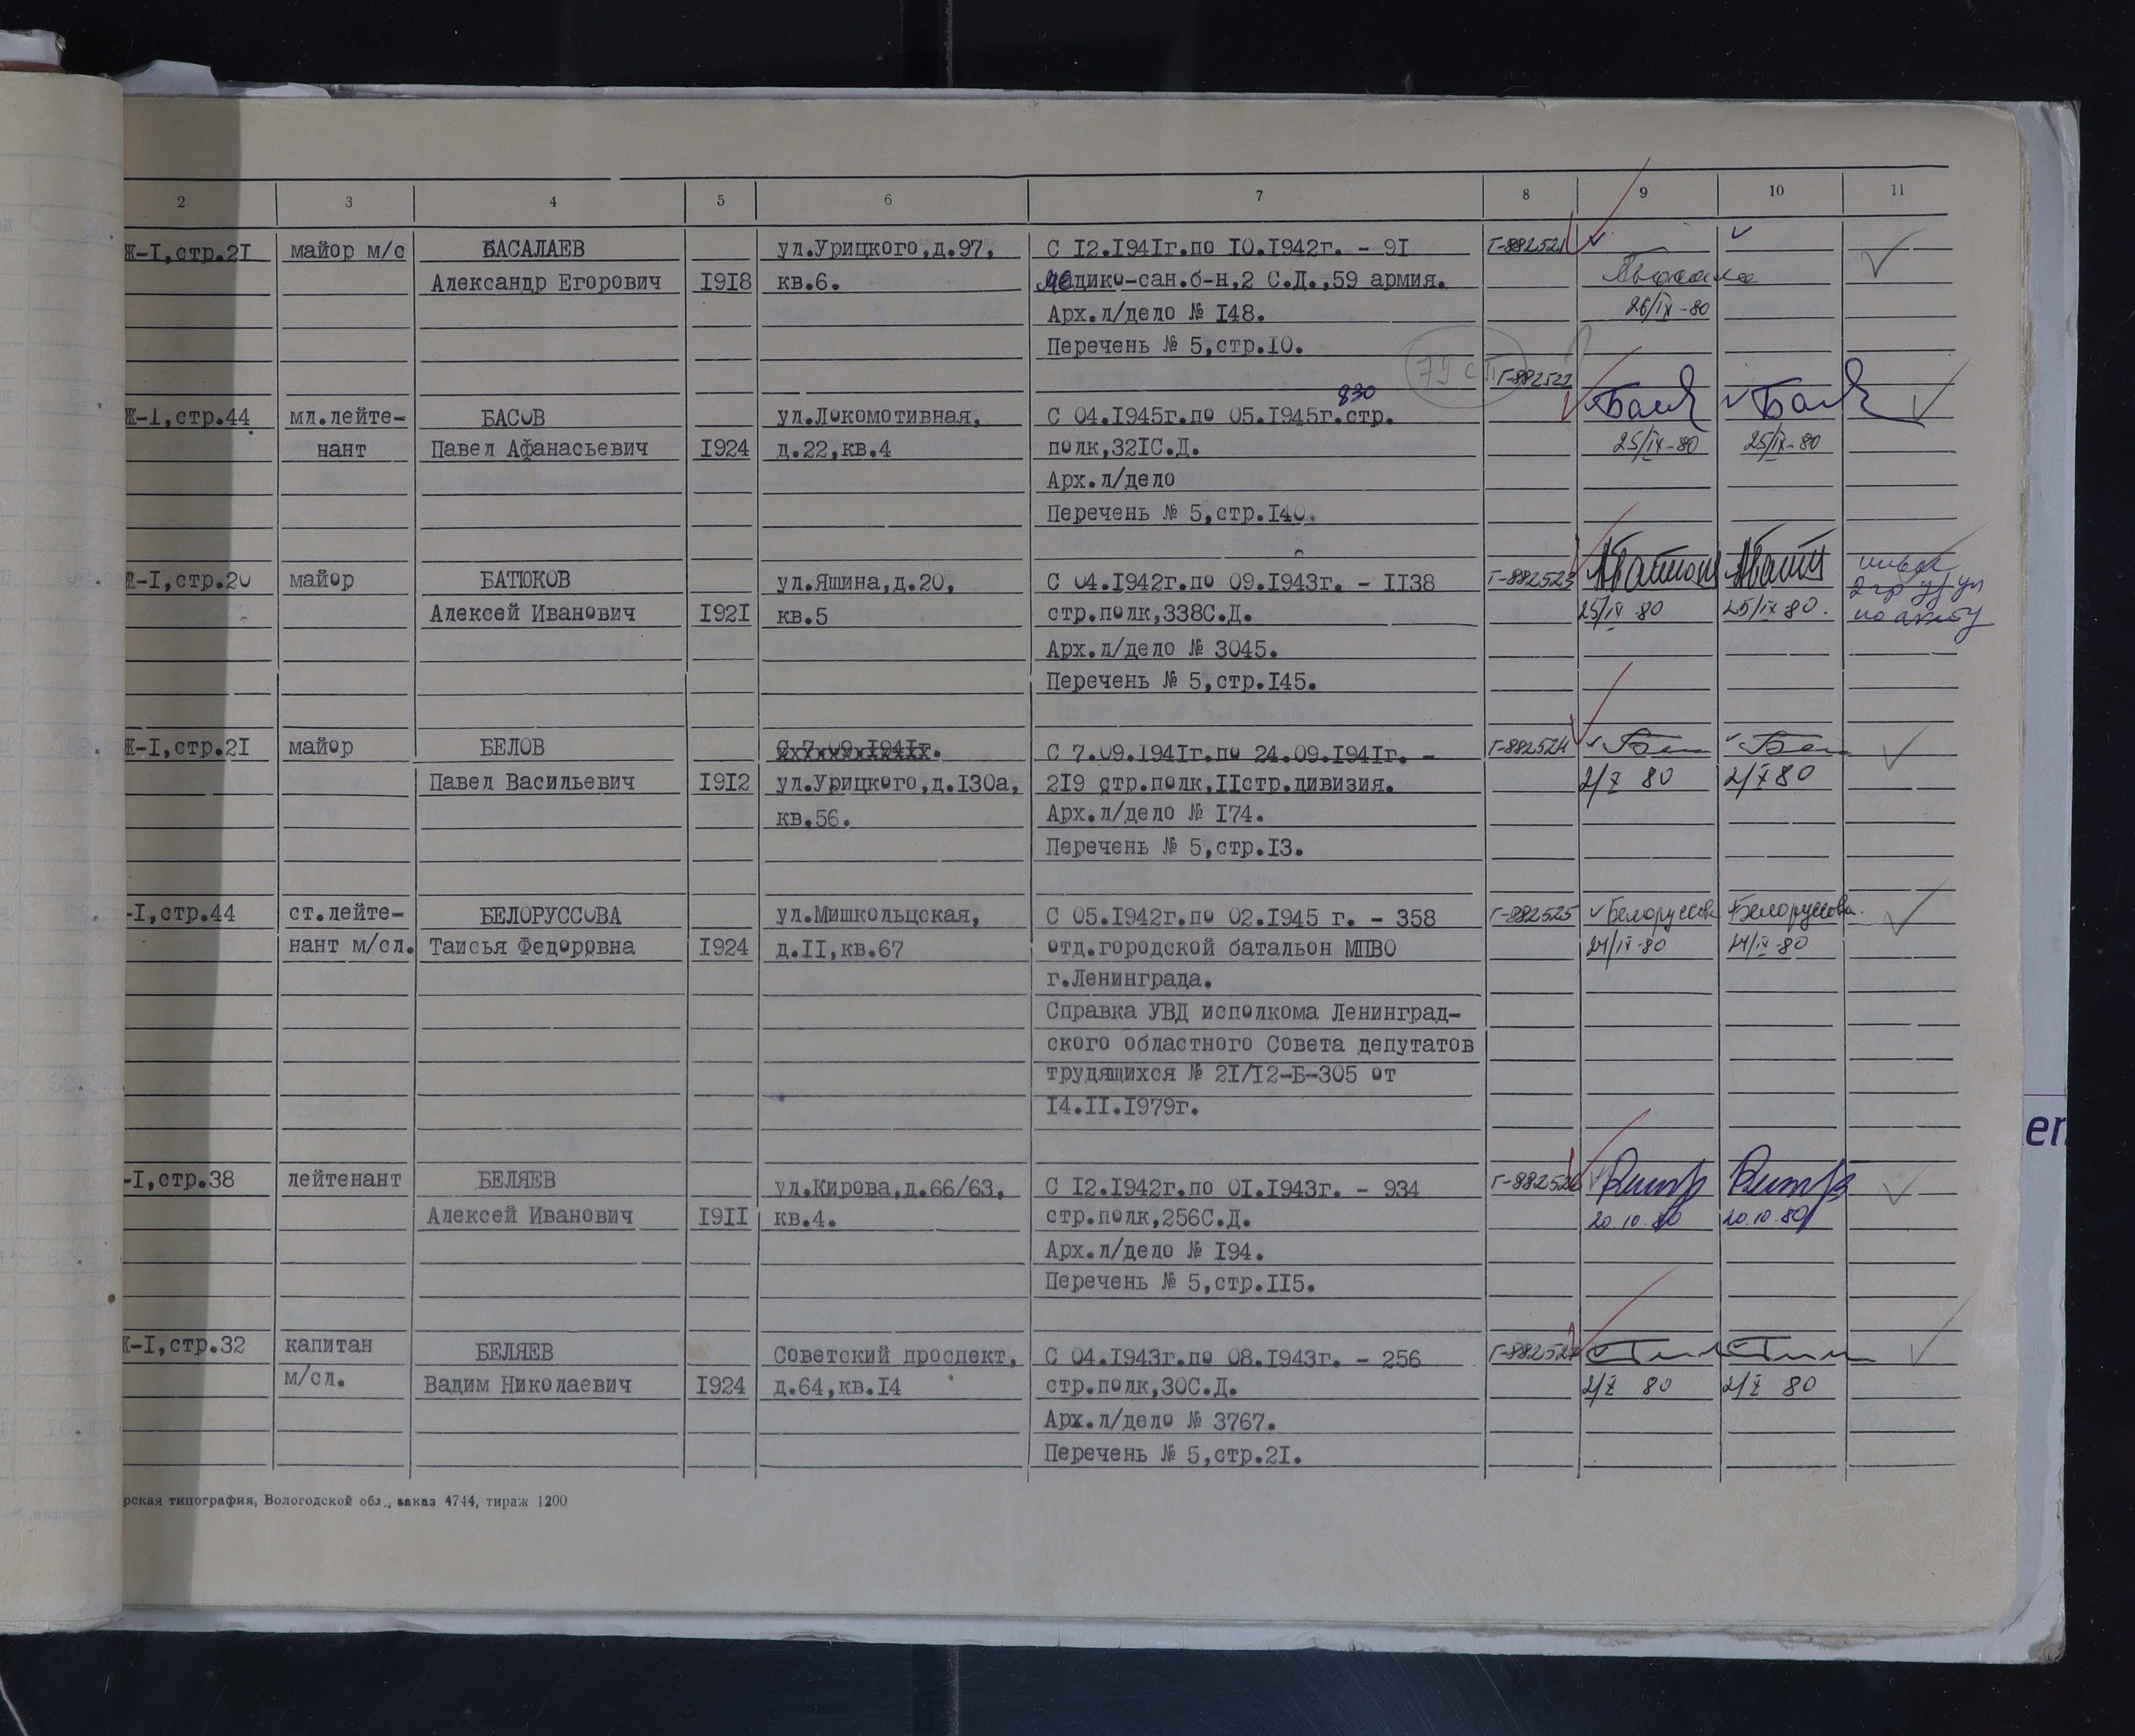 2 3 4 5 6 7 8 9 10 11
Ж-I,стр.2I майор м/с БАСАЛАЕВ ул.Урицкого,д.97, С I2.I94Iг.по I0.I942г. - 9I Г-882521
Александр Егорович I9I8 кв.6. медико-сан.б-н,2 С.Д.,59 армия.
26/IX-80
Арх.л/дело № I48.
Перечень № 5,стр.I0.
79 сп Г-882522
830
Ж-I,стр.44 мл.лейте- БАСОВ ул.Локомотивная, С 04.I945г.по 05.I945г.стр.
нант Павел Афанасьевич I924 д.22,кв.4 полк,32IС.Д. 25/IX-80 25/IX-80
Арх.л/дело
Перечень № 5,стр.I40.
Ж-I,стр.20 майор БАТЮКОВ ул.Яшина,д.20, С 04.I942г.по 09.I943г. - II38 Г-882523
Алексей Иванович I92I кв.5 стр.полк,338С.Д. 25/IX 80 25/IX 80. по акту
Арх.л/дело № 3045.
Перечень № 5,стр.I45.
Ж-I,стр.2I майор БЕЛОВ С 7.09.I94Iг. С 7.09.I94Iг.по 24.09.I94Iг. - Г-882524
Павел Васильевич I9I2 ул.Урицкого,д.I30а, 2I9 стр.полк,IIстр.дивизия. 2/X 80 2/X 80
кв.56. Арх.л/дело № I74.
Перечень № 5,стр.I3.
-I,стр.44 ст.лейте- БЕЛОРУССОВА ул.Мишкольцская, С 05.I942г.по 02.I945 г. - 358 Г-882525 Белоруссова Белоруссова.
нант м/сл. Таисья Федоровна I924 д.II,кв.67 отд.городской батальон МПВО 24/IX-80 24/IX-80
г.Ленинграда.
Справка УВД исполкома Ленинград-
ского областного Совета депутатов
трудящихся № 2I/I2-Б-305 от
I4.II.I979г.
-I,стр.38 лейтенант БЕЛЯЕВ ул.Кирова,д.66/63, С I2.I942г.по 0I.I943г. - 934 Г-882526
Алексей Иванович I9II кв.4. стр.полк,256С.Д. 20.10.80 20.10.80
Арх.л/дело № I94.
Перечень № 5,стр.II5.
Ж-I,стр.32 капитан БЕЛЯЕВ Советский проспект, С 04.I943г.по 08.I943г. - 256 Г-882527
м/сл. Вадим Николаевич I924 д.64,кв.I4 стр.полк,30С.Д. 2/X 80 2/X 80
Арх.л/дело № 3767.
Перечень № 5,стр.2I.
рская типография, Вологодской обл., заказ 4744, тираж 1200
en